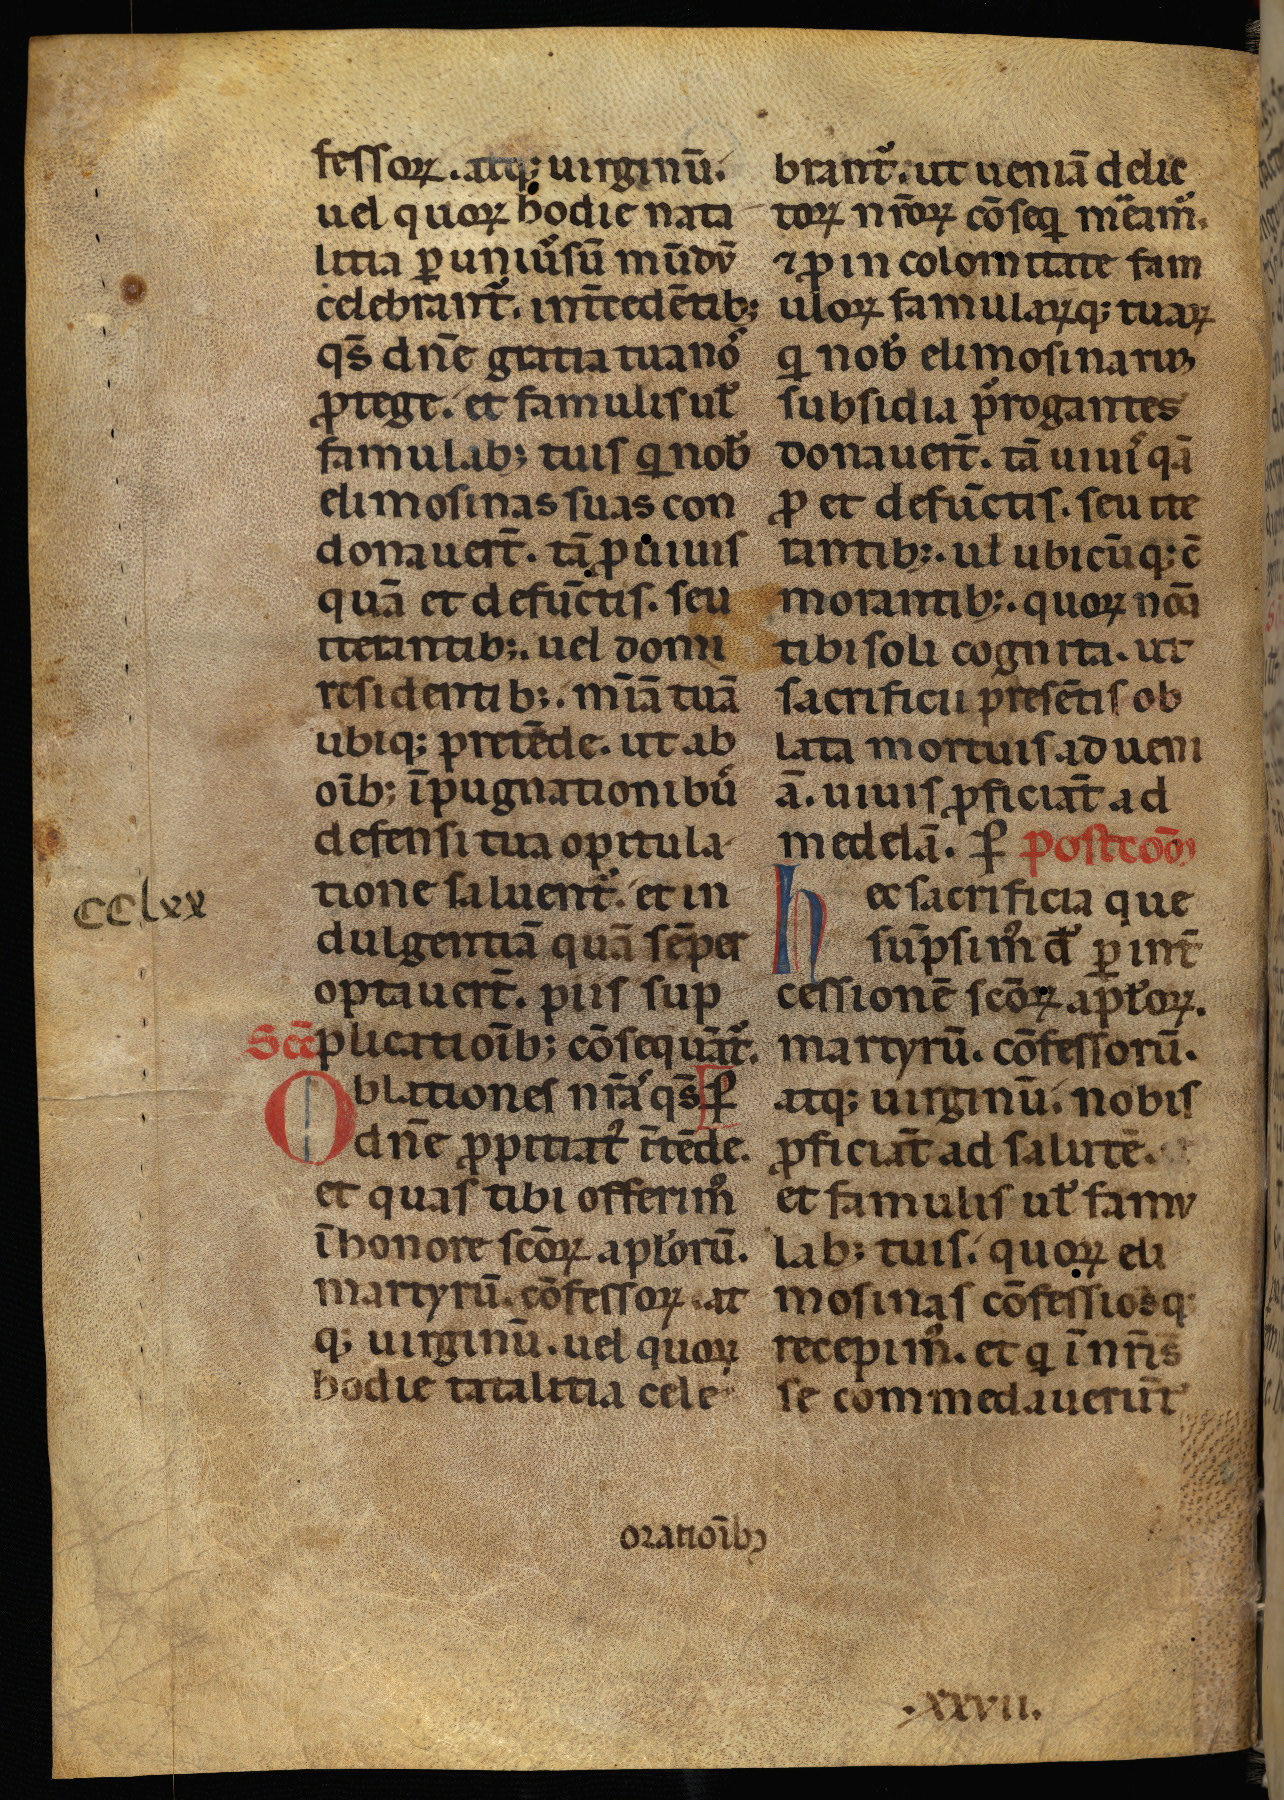 fessoꝝ. atq; uirginū.
uel quoꝝ hodie nata
litia ꝑ uniu͛sū mūdū
celebrant᷑. int̄cedētib;
qs̄ dn̄e gratia tua noˢ
ꝓtege. et famulis ul̓
famulab; tuis q̇ nob̓
elimosinas suas con
donauer̄t. tā ꝓ uiuis
quā et defūctis. seu
iterantib;. uel domi
residentib;. mīā tuā
ubiq; pretēde. ut ab
oīb; īpugnationibuˢ
defensi tua opitula
tione saluent᷑. et in
dulgentiā quā sēper
optauer̄t. piis sup
plicatioīb; cōsequāt᷑. ꝑ
Sec̄
Oblationes nr̄aˢ qs̄
dn̄e ꝓpitiat᷑ ītēde.
et quas tibi offerimꝰ
ī honore scōꝝ apl̓orū.
martyrū. cōfessoꝝ. at
q; uirginū. uel quoꝝ
hodie tatalitia cele
brant᷑. ut ueniā delic
toꝝ nr̄oꝝ cōseq̇ me᷑am᷑.
⁊ ꝓ incolomitate fam
uloꝝ famulaꝝq; tuaꝝ
q̇ nob̓ elimosinarum
subsidia p͛rogantes
donauer̄t. tā uiuiˢ qā
ꝓ et defūctis. seu ite
rantib;. ul̓ ubicūq; cō
morantib;. quoꝝ noīa
tibi soli cognita. ut
sacrificii presētis ob
lata mortuis ad ueni
ā. uiuis ꝓficiāt ad
medelā. ꝑ postcoō
hec sacrificia que
sūpsimꝰ dn̄e ꝑ int̄
cessionē scōꝝ apl̓oꝝ.
martyrū. cōfessorū.
atq; uirginū. nobis
ꝓficiāt ad salutē.
et famulis ul̓ famu
lab; tuis. quoꝝ eli
mosinas cōfessiosq;
recepimꝰ. et q̇ ī nr̄is
se commedauerūt
cclxx
oratioīb;
.xxvii.